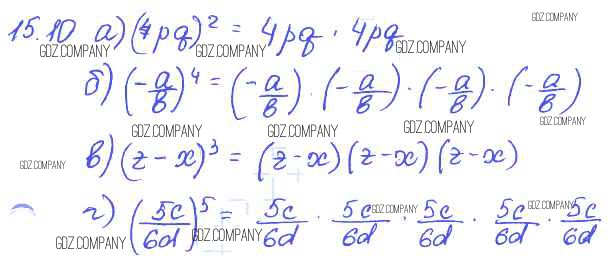 15.10 а) (4pq)² = 4pq · 4pq
б) (-a/b)⁴ = (-a/b) · (-a/b) · (-a/b) · (-a/b)
в) (z - x)³ = (z - x)(z - x)(z - x)
г) (5c/6d)⁵ = 5c/6d · 5c/6d · 5c/6d · 5c/6d · 5c/6d
GDZ.COMPANY
GDZ.COMPANY
GDZ.COMPANY
GDZ.COMPANY
GDZ.COMPANY
GDZ.COMPANY
GDZ.COMPANY
GDZ.COMPANY
GDZ.COMPANY
GDZ.COMPANY
GDZ.COMPANY
GDZ.COMPANY
GDZ.COMPANY